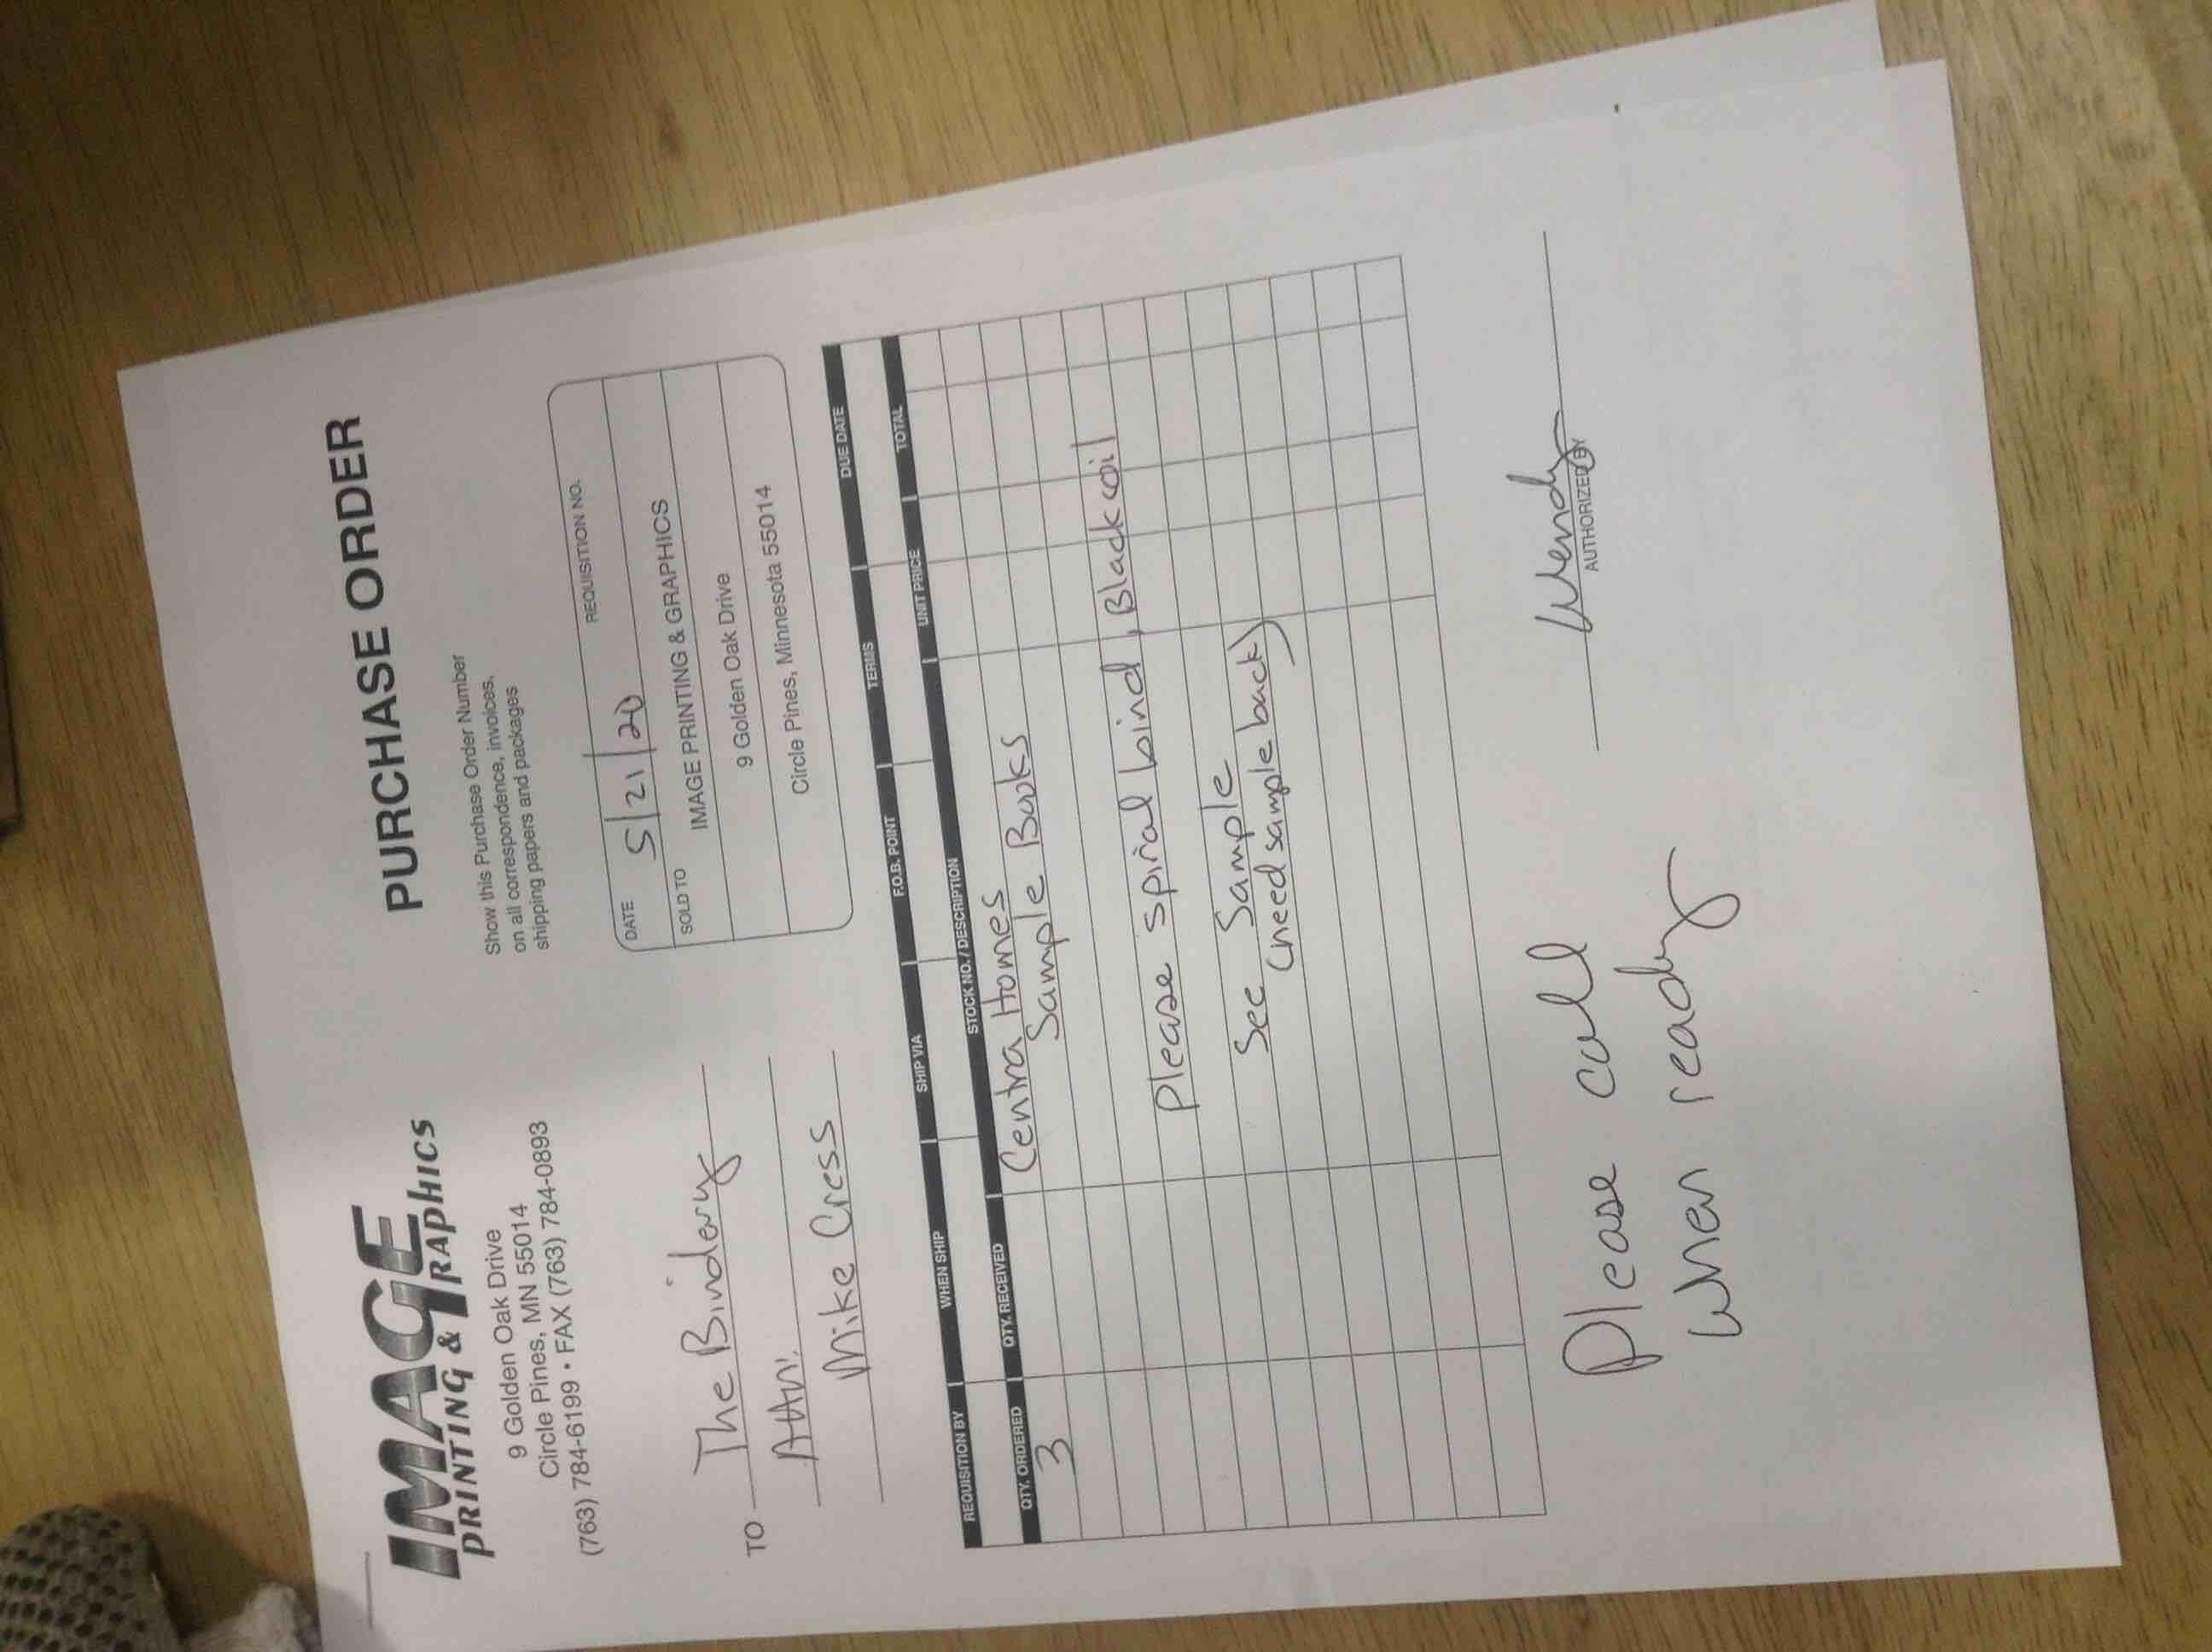 IMAGE
PRINTING & GRAPHICS
9 Golden Oak Drive
Circle Pines, MN 55014
(763) 784-6199 • FAX (763) 784-0893
PURCHASE ORDER
Show this Purchase Order Number
on all correspondence, invoices,
shipping papers and packages
DATE 5/21/20 REQUISITION NO.
SOLD TO
IMAGE PRINTING & GRAPHICS
9 Golden Oak Drive
Circle Pines, Minnesota 55014
TO The Bindery
Attn:
Mike Cress
REQUISITION BY WHEN SHIP SHIP VIA F.O.B. POINT TERMS DUE DATE
QTY. ORDERED QTY. RECEIVED STOCK NO. / DESCRIPTION UNIT PRICE TOTAL
3 Centra Homes
Sample Books
Please spiral bind, Black coil
See Sample
(need sample back)
Please call
when ready
Wendy
AUTHORIZED BY